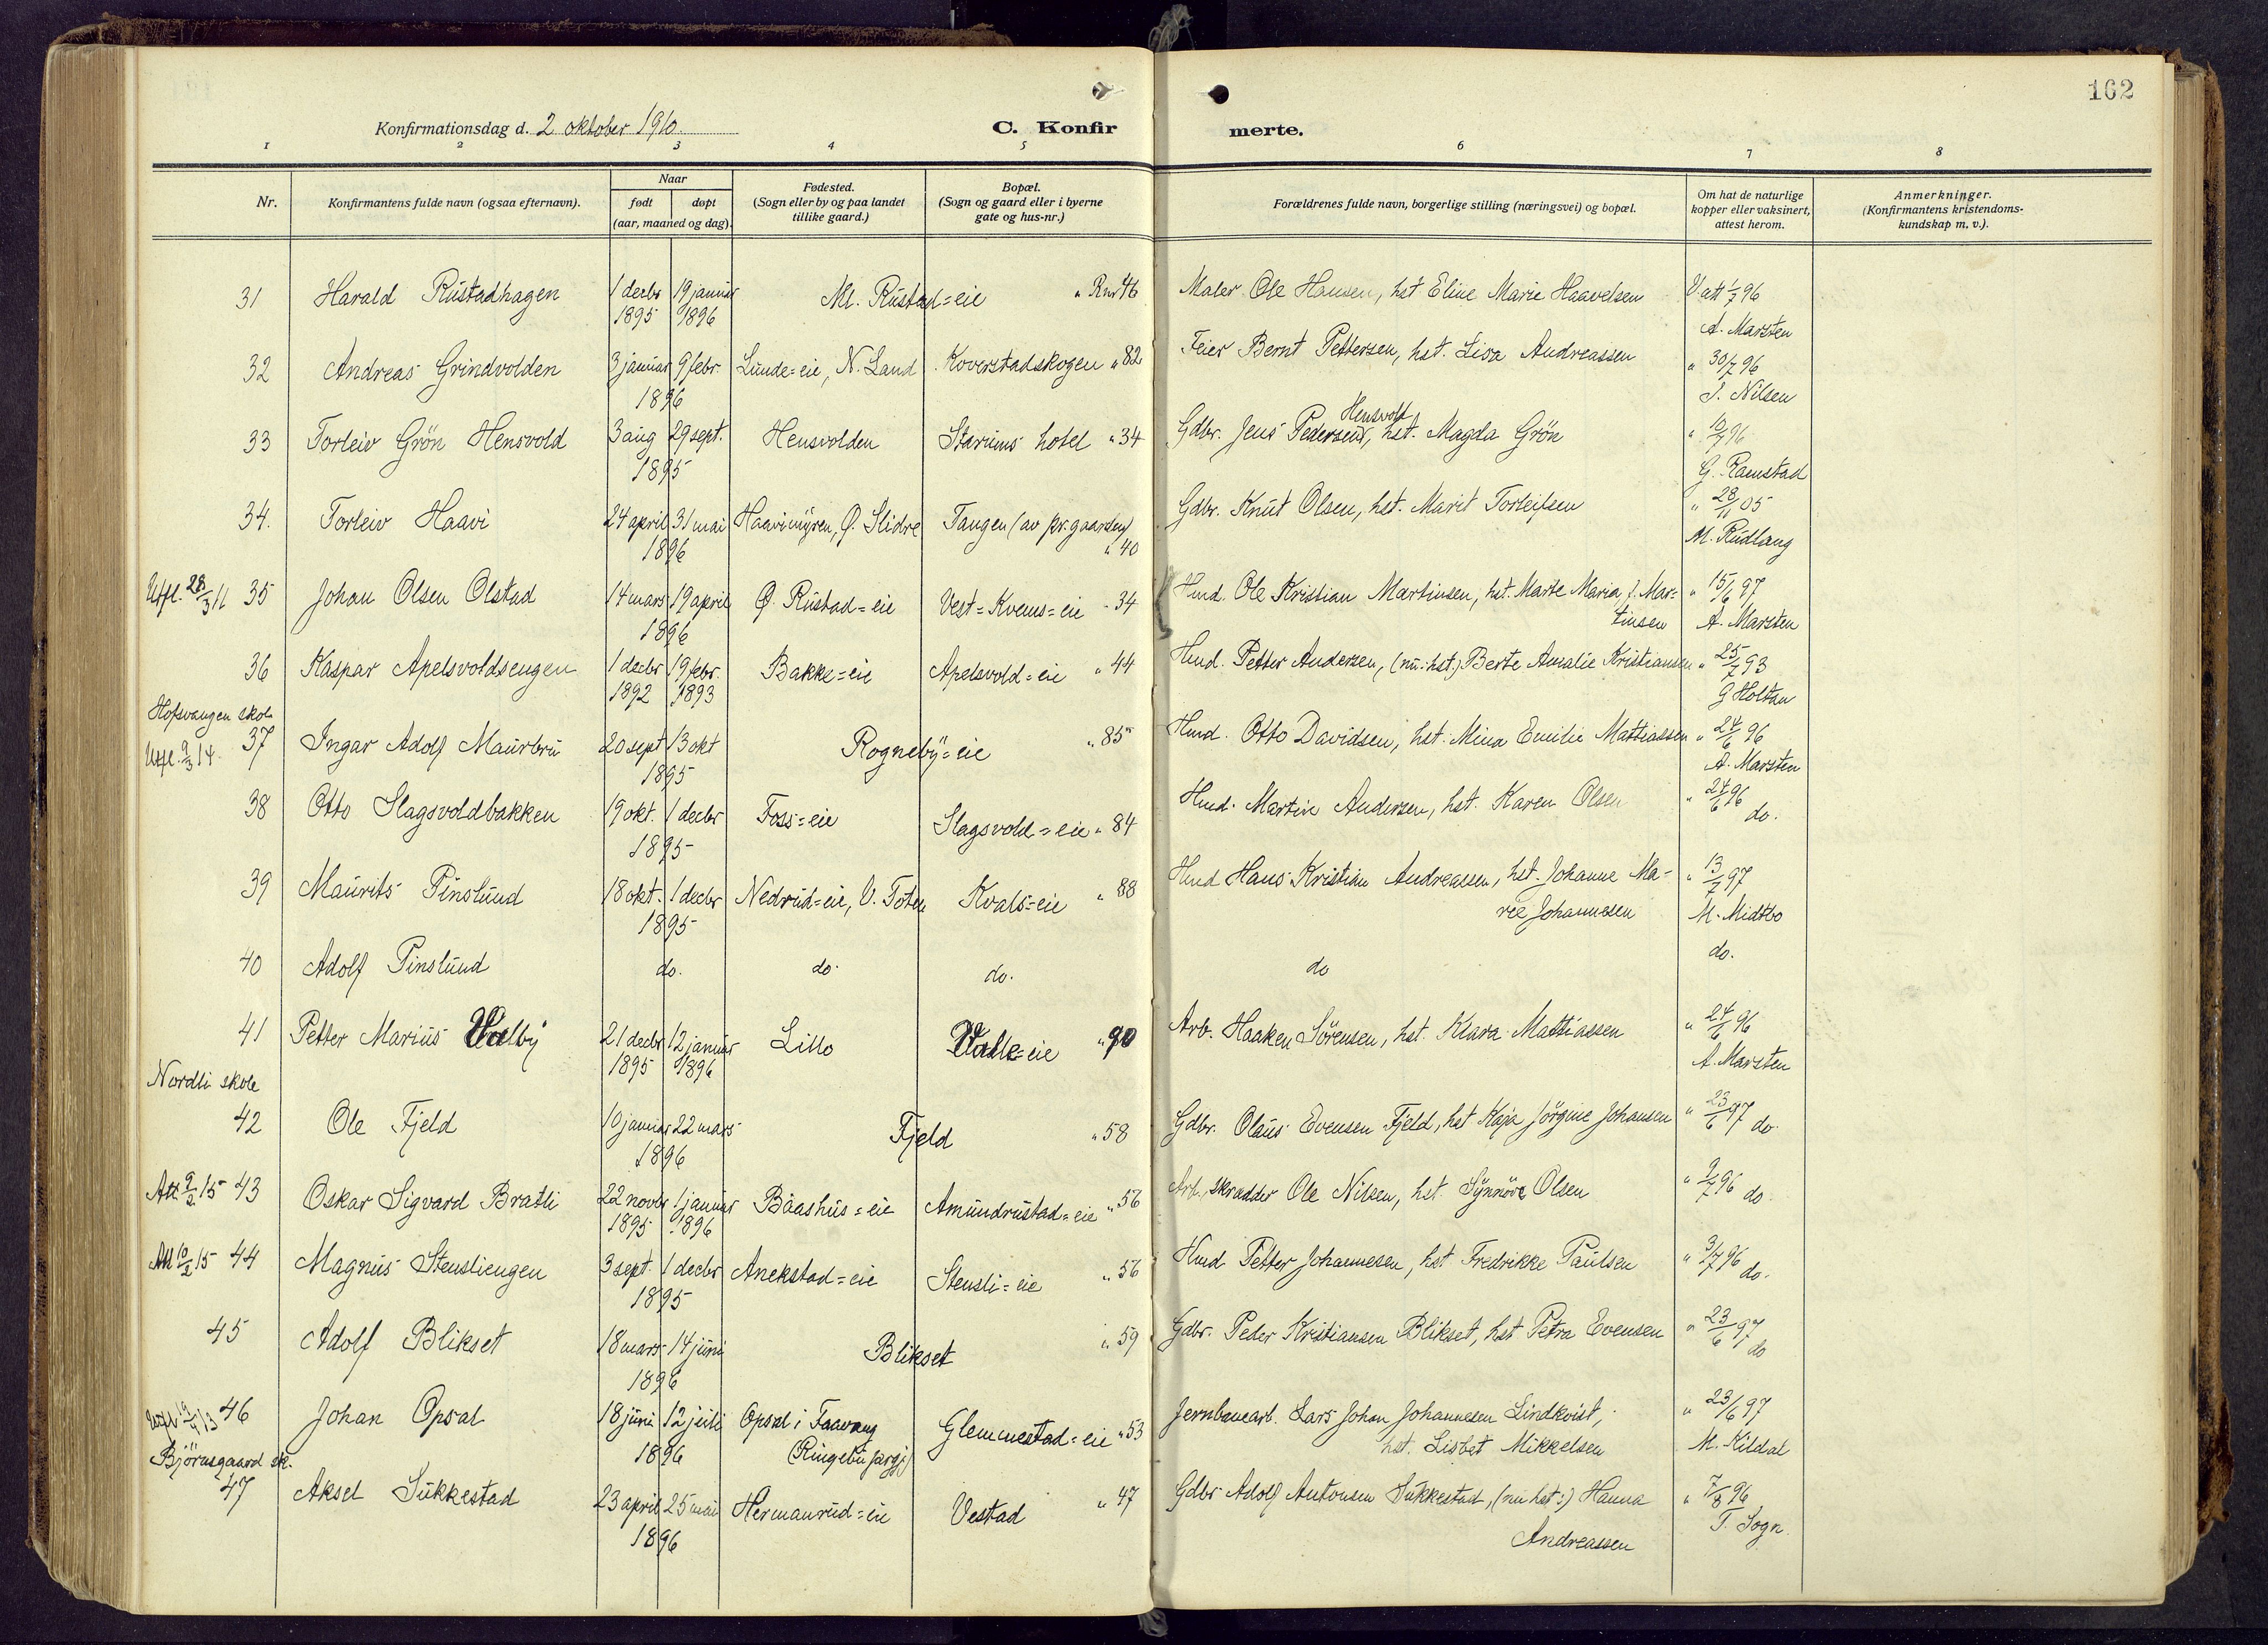 162
Konfirmationsdag d. 2 oktober 1910.
C. Konfirmerte.
1 2 3 4 5 6 7 8
Nr.
Konfirmantens fulde navn (ogsaa efternavn).
Naar
født døpt
(aar, maaned og dag).
Fødested.
(Sogn eller by og paa landet
tillike gaard.)
Bopæl.
(Sogn og gaard eller i byerne
gate og hus-nr.)
Forældrenes fulde navn, borgerlige stilling (næringsvei) og bopæl.
Om hat de naturlige
kopper eller vaksinert,
attest herom.
Anmerkninger.
(Konfirmantens kristendoms-
kundskap m. v.).
31 Harald Rustadhagen 1 decbr 19 januar Ml. Rustad=eie " Rnr 46 Maler Ole Hansen, hst Eline Marie Haavelsen V. att 1/7 96
1895 1896 A. Marsten
32 Andreas Grindvolden 3 januar 9 febr. Lunde=eie, N. Land Koverstadskogen " 82 Feier Bernt Pettersen, hst. Lisa Andreassen " 30/7 96
1896 J. Nilsen
33 Torleiv Grön Hensvold 3 aug 29 sept. Hensvolden Stariums hotel " 34 Gdbr. Jens Pedersen Hensvold, hst. Magda Grön " 10/7 96
1895 G. Ramstad
34. Torleiv Haavi 24 april 31 mai Haavimyren, Ø. Slidre Tangen (av pr.gaarden) Gdbr. Knut Olsen, hst. Marit Torleifsen " 28/11 05
1896 " 40 M. Rudlang
Utfl. 28/3 11 35 Johan Olsen Olstad 14 mars 19 april Ø. Rustad=eie Vest=Kvems=eie " 34 Hmd. Ole Kristian Martinsen, hst. Marte Maria f. Mar- " 15/6 97
1896 tinsen A. Marsten
36 Kaspar Apelsvoldsengen 1 decbr 19 febr. Bakke=eie Apelsvold=eie " 44 Hmd. Petter Andersen, (nu: hst.) Berte Amalie Kristiansen " 25/7 93
1892 1893 G Holtan
Hofsvangen skole
Utfl. 9/3 14. 37 Ingar Adolf Maurbru 20 sept 13 okt Rogneby=eie " 85 Hmd. Otto Davidsen, hst. Mina Emilie Mattiassen " 24/6 96
1895 A. Marsten
38 Otto Slagsvoldbakken 19 okt. 1 decbr Foss=eie Slagsvold=eie " 84 Hmd. Martin Andersen, hst. Karen Olsen " 24/6 96 do.
1895
39 Maurits Pinslund 18 okt. 1 decbr Nedrud=eie, V. Toten Kvals=eie " 88 Hmd Hans Kristian Andreassen, hst. Johanne Ma- " 13/7 97
1895 rie Johannesen M. Midtbo
40 Adolf Pinslund do. do. do. do do.
41 Petter Marius Valby 21 decbr 12 januar Lillo Valle=eie " 90 Arb. Haaken Sörensen, hst. Klara Mattiassen " 24/6 96
1895 1896 A. Marsten
Nordli skole
42 Ole Fjeld 10 januar 22 mars Fjeld " 58 Gdbr. Olaus Evensen Fjeld, hst Kaja Jörgine Johansen " 23/6 97 do.
1896
Att. 9/2 15 43 Oskar Sigvard Bratli 22 novbr 1 januar Baashus=eie Amundrustad=eie " 56 Arb., skrædder Ole Nilsen, hst. Synnöve Olsen " 9/7 96 do.
1895 1896
Att 10/2 15 44 Magnus Stensliengen 3 sept. 1 decbr Anekstad=eie Stensli=eie " 56 Hmd Petter Johannesen, hst Fredrikke Paulsen " 3/7 96 do.
1895
45 Adolf Blikset 18 mars 14 juni Blikset " 59 Gdbr. Peder Kristiansen Blikset, hst Petra Evensen " 23/6 97 do
1896
Utfl 19/4 13 46 Johan Opsal 18 juni 12 juli Opsal i Faavang Glemmestad=eie " 53 Jernbanearb. Lars Johan Johannesen Lindkvist, " 23/6 97
1896 Ringebu prgj. hst. Lisbet Mikkelsen M. Kildal
Björnsgaard sk.
47 Aksel Sukkestad 23 april 25 mai Hermanrud=eie Vestad " 47 Gdbr Adolf Antonsen Sukkestad, (nu hst:) Hanna " 7/8 96
1896 Andreassen T. Sogn.